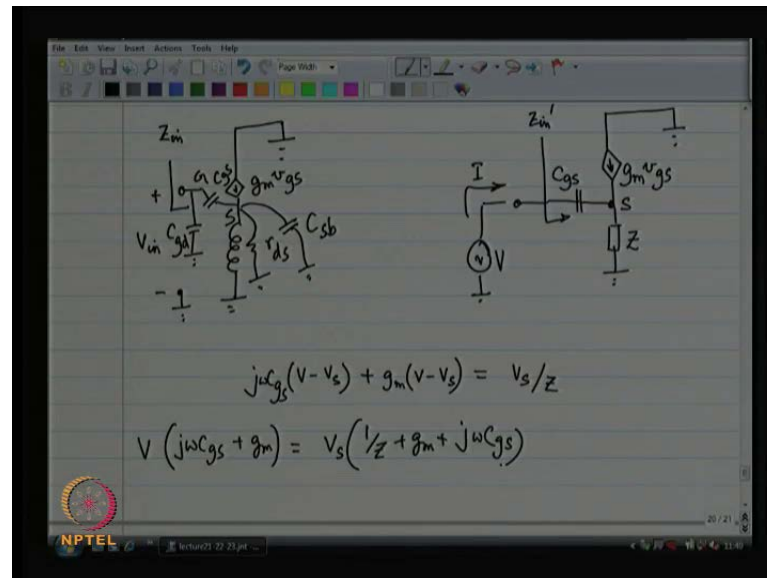 File Edit View Insert Actions Tools Help
Page Width
Zin
+
G
Cgs
gm vgs
Vin
Cgd
S
rds
Csb
-
Zin'
I
V
Cgs
gm vgs
S
Z
jωCgs(V-Vs) + gm(V-Vs) = Vs/Z
V (jωCgs + gm) = Vs(1/Z + gm + jωCgs)
20 / 21
NPTEL
lecture21-22 23.jnt -...
11:49